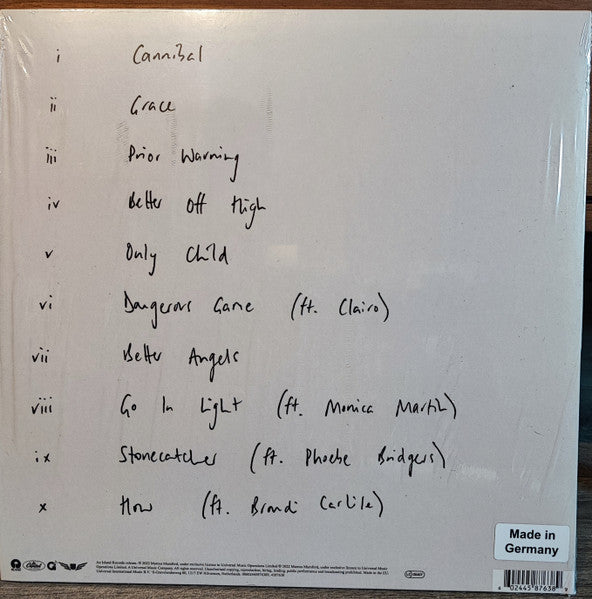 i Cannibal
ii Grace
iii Prior Warning
iv Better Off High
v Only Child
vi Dangerous Game (ft. Clairo)
vii Better Angels
viii Go In Light (ft. Monica Martin)
ix Stonecatcher (ft. Phoebe Bridgers)
x How (ft. Brandi Carlile)
Made in
Germany
Capitol